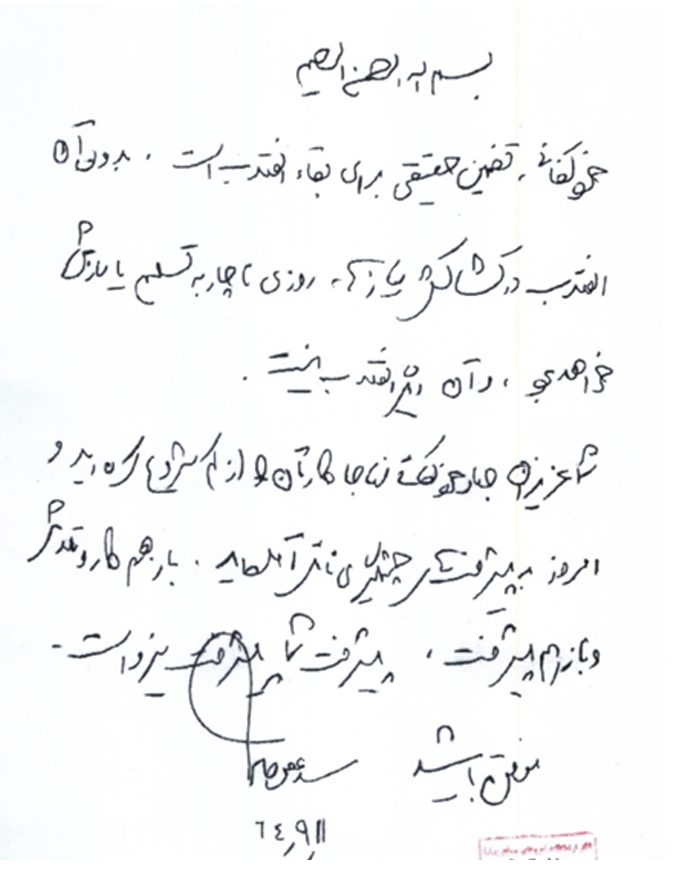 بسم الله الرحمن الرحیم
خودکفائی، تضمین حقیقی برای بقاء انقلاب است. بدون آن
انقلاب در کشاکش نیازها، روزی ناچار به تسلیم یا سازش
خواهد بود، و آن دیگر انقلاب نیست.
شما عزیزان جهاد خودکفائی نهاجا کار آن را از کم شروع کرده‌اید و
امروز به پیشرفت‌های چشمگیری نائل آمده‌اید. باز هم کار و تلاش
و باز هم پیشرفت، پیشرفت شما پیشرفت نیرو است.
موفق باشید سید علی خامنه‌ای
٦٤٫٩٫١١